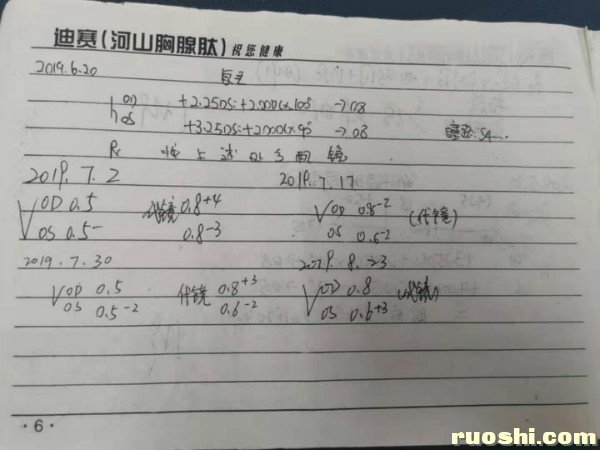 迪赛(河山胸腺肽) 祝您健康
2019.6.20 复查
OD +2.25DS:+2.00DC×105° →0.8
OS +3.25DS:+2.00DC×95° →0.8
Rx 按上述处方配镜
2019.7.2 2019.7.17
V OD 0.5 戴镜 0.8+4 V OD 0.8-2 (戴镜)
OS 0.5- 0.8-3 OS 0.5-2
2019.7.30 2019.8.23
V OD 0.5 戴镜 0.8+3 V OD 0.8 (戴镜)
OS 0.5-2 0.6-2 OS 0.6+3
·6·
ruoshi.com